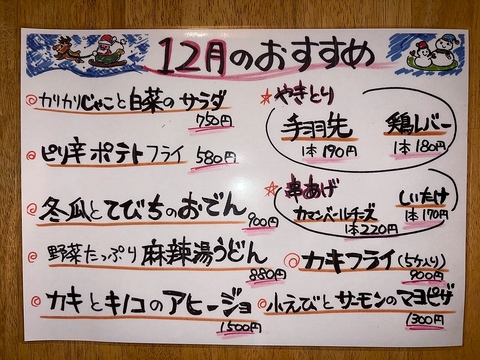 12月のおすすめ
カリカリじゃこと白菜のサラダ
750円
ピリ辛ポテトフライ 580円
冬瓜とてびちのおでん
900円
野菜たっぷり麻辣湯うどん
880円
カキとキノコのアヒージョ
1500円
☆やきとり
手羽先 鶏レバー
1本190円 1本180円
☆串あげ
カマンベールチーズ しいたけ
1本220円 1本170円
カキフライ(5ケ入り)
900円
小えびとサーモンのマヨピザ
1300円